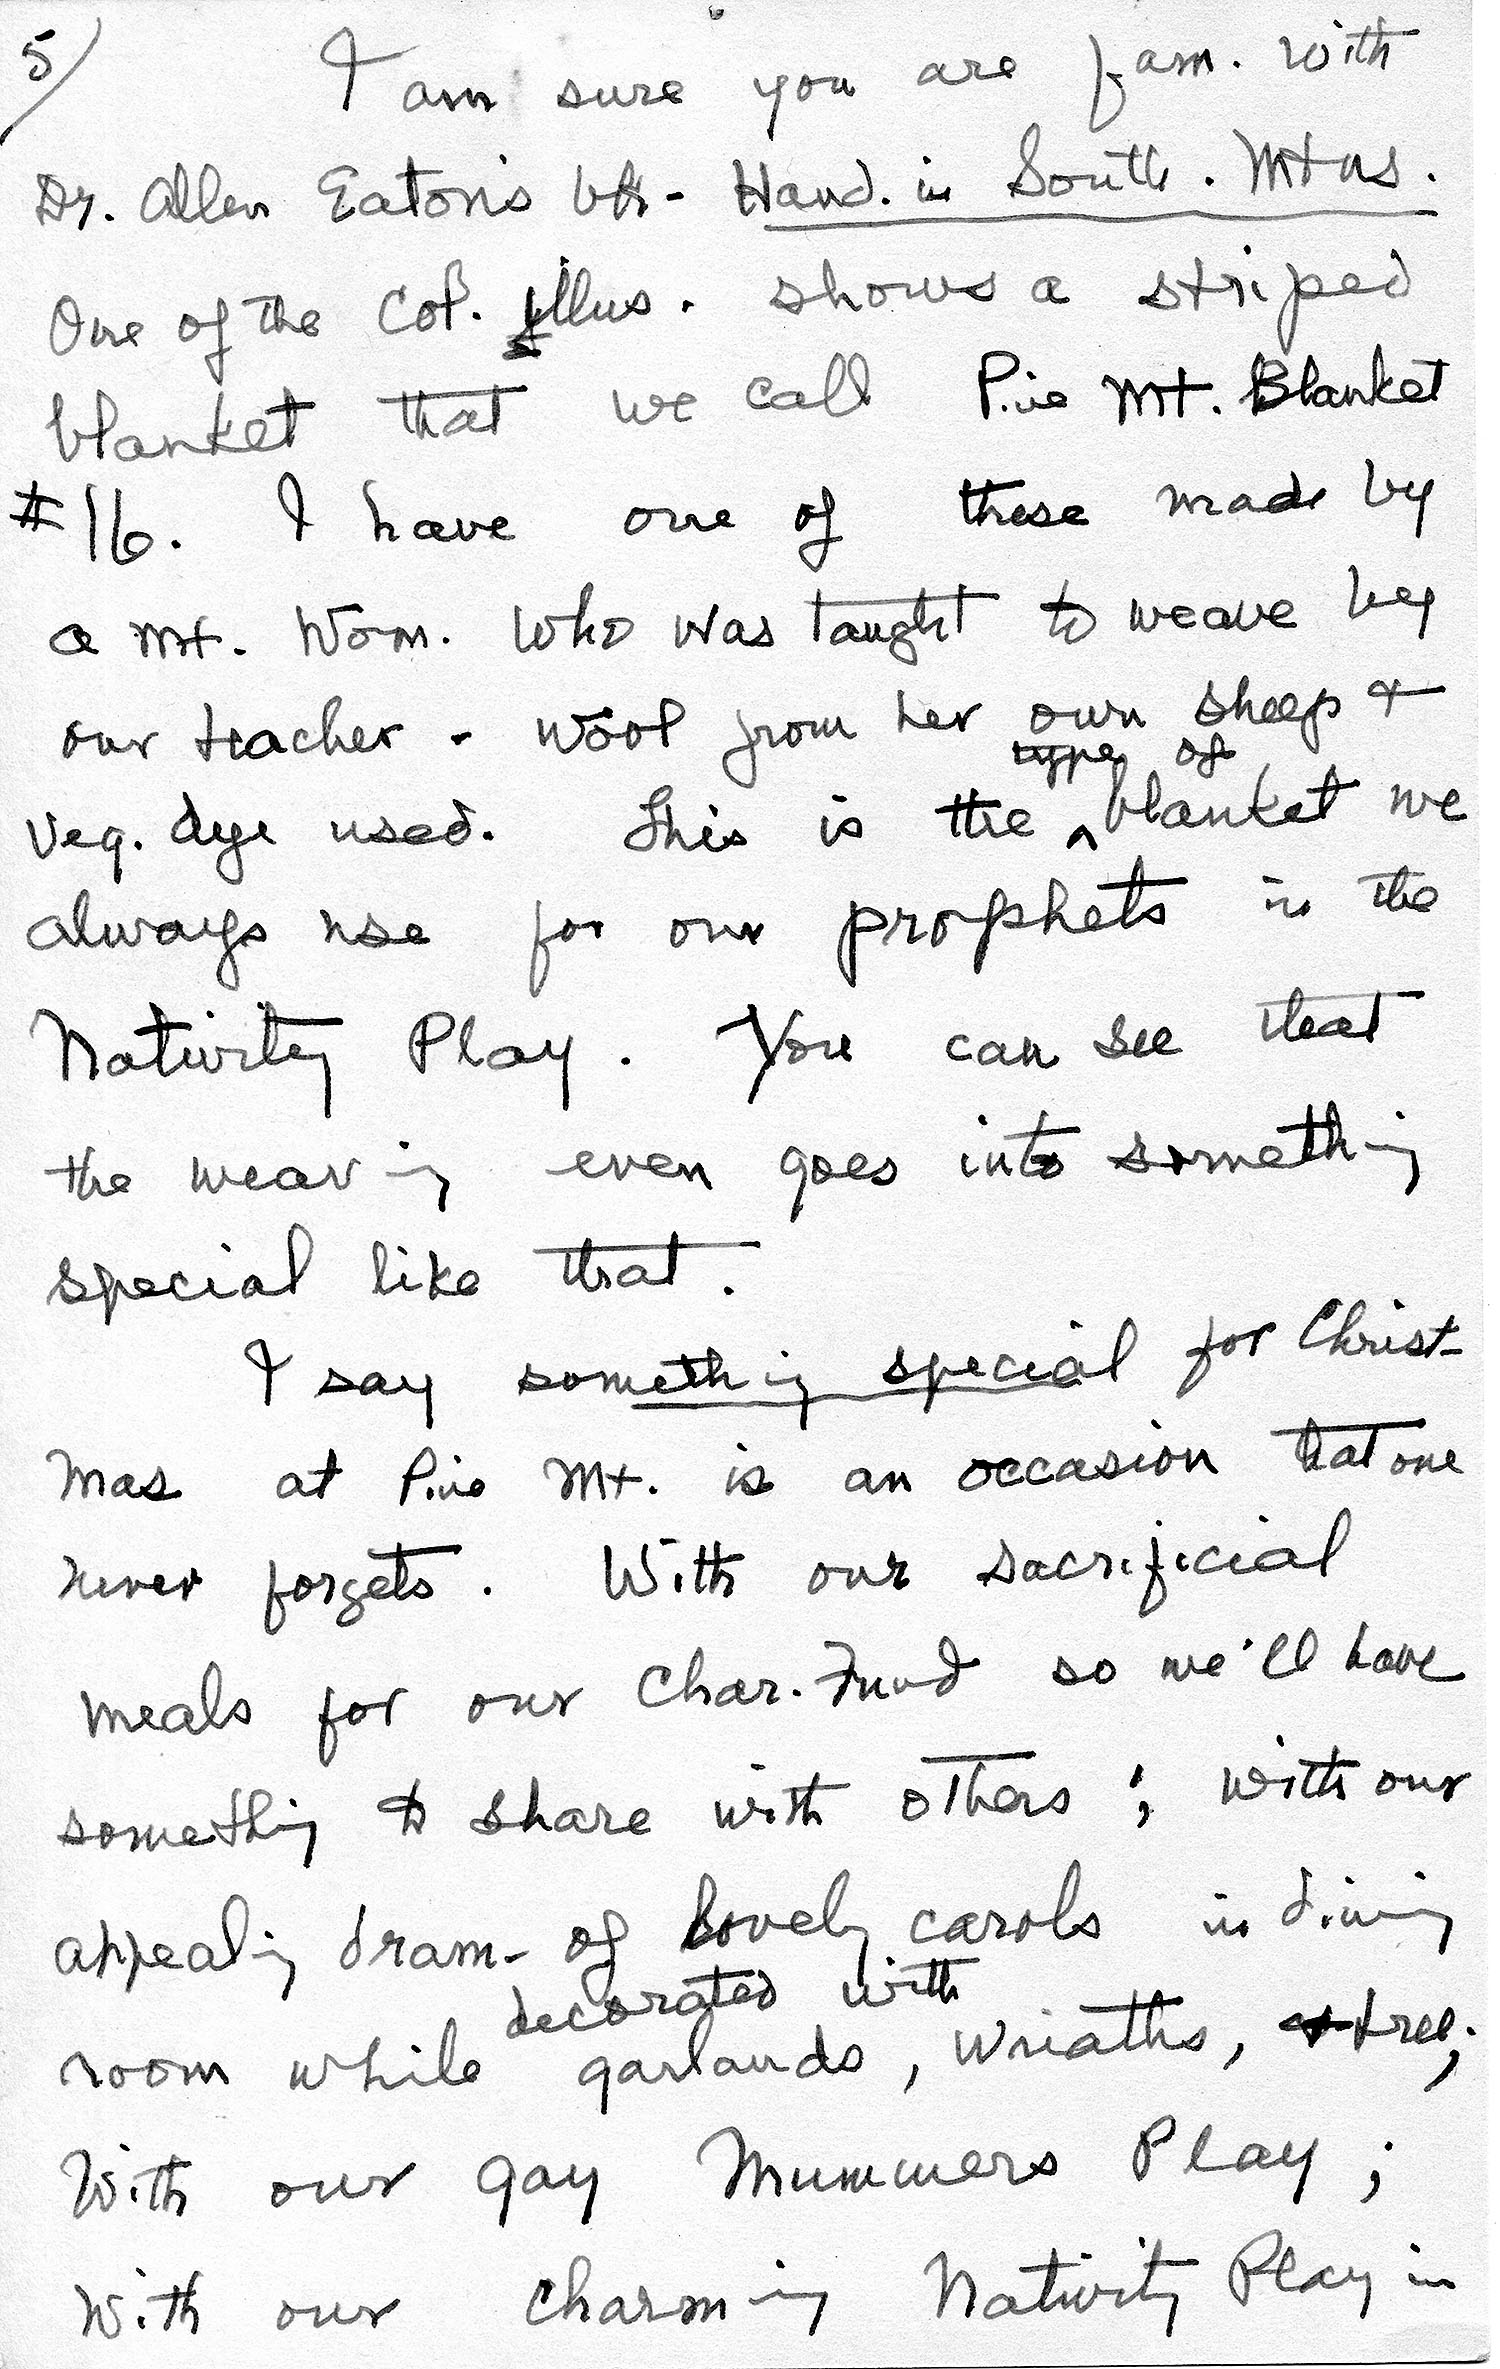 5/ I am sure you are fam. with
Dr. Allen Eaton's bk- Hand. in South. Mtns.
One of the Col. illus. shows a striped
blanket that we call Pine Mt. Blanket
#16. I have one of these made by
a Mt. Wom. who was taught to weave by
our teacher - wool from her own sheep +
veg. dye used. This is the type of blanket we
always use for our prophets in the
Nativity Play. You can see that
the weaving even goes into something
special like that.
I say something special for Christ-
mas at Pine Mt. is an occasion that one
never forgets. With our sacrificial
meals for our Char. Fund so we'll have
something to share with others; with our
appealing dram- of lovely carols in dining
room while decorated with garlands, wreaths, + tree;
With our gay Mummers Play;
With our charming Nativity Play in